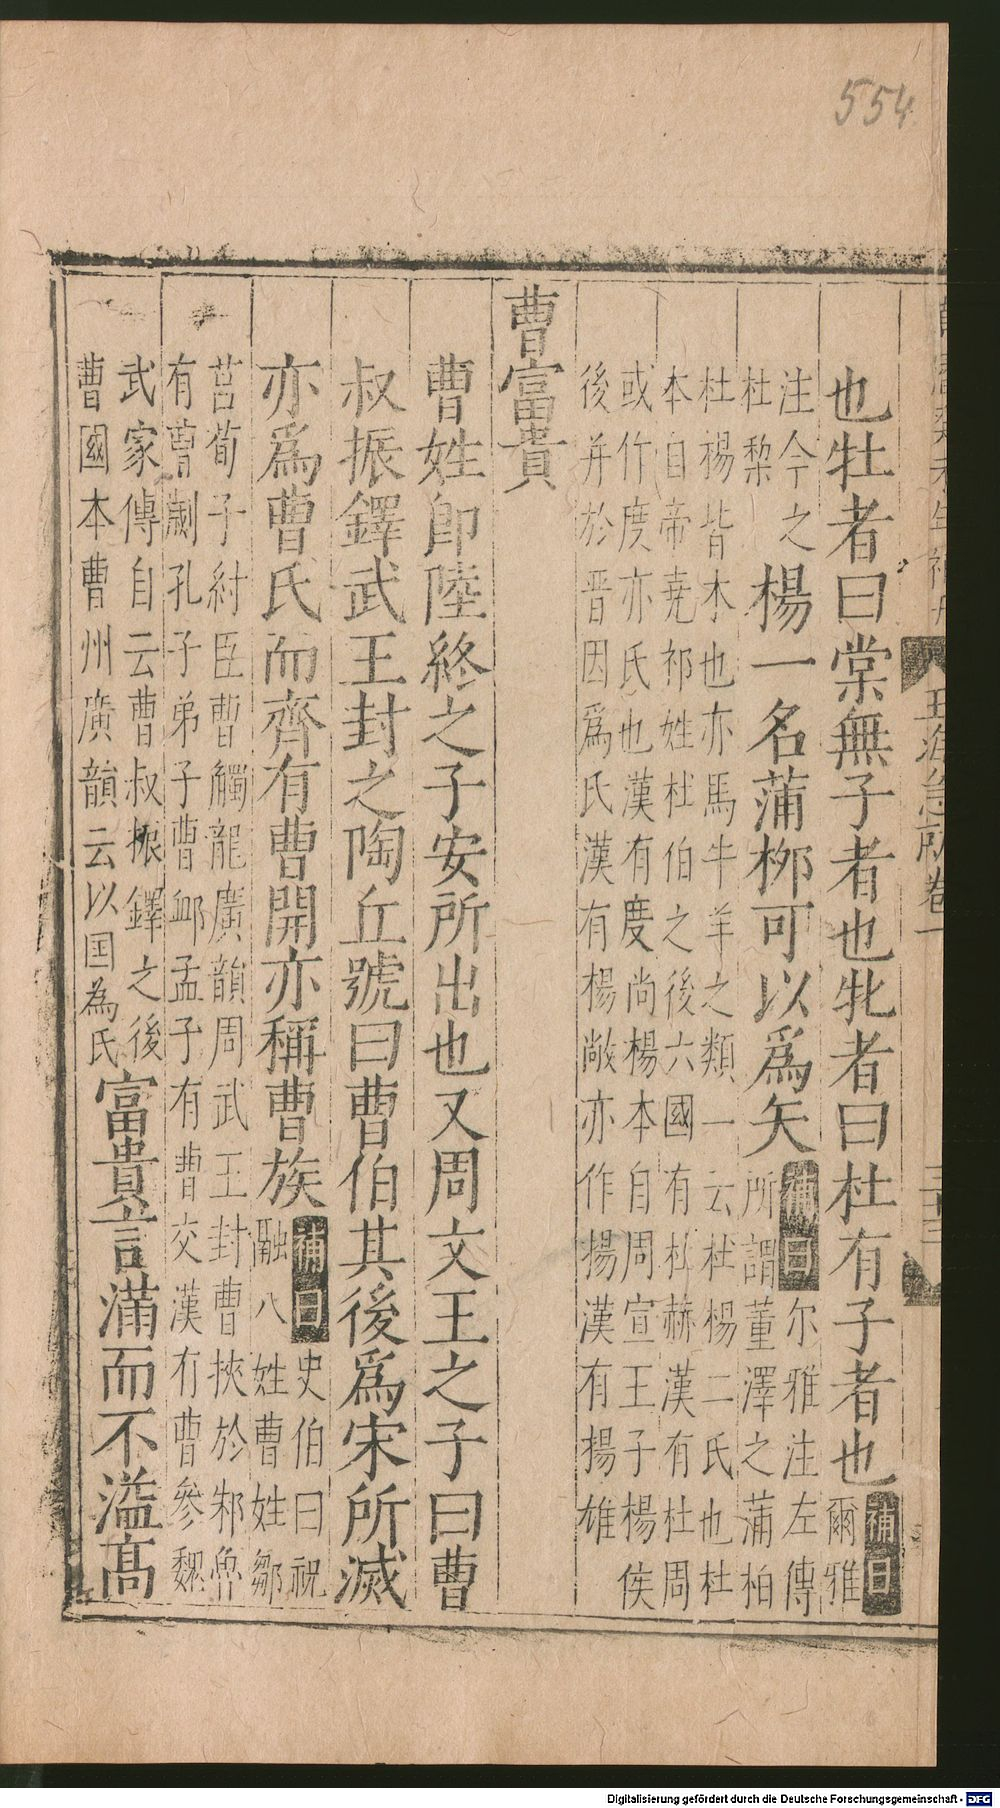 554
玉海急就卷一
也牡者曰棠無子者也牝者曰杜有子者也補曰爾雅
注今之杜棃楊一名蒲桺可以爲矢補曰尔雅注左傳所謂董澤之蒲柏
杜楊皆木也亦馬牛羊之類一云杜楊二氏也杜
本自帝堯祁姓杜伯之後六國有杜赫漢有杜周
或作度亦氏也漢有度尚楊本自周宣王子楊侯
後并於晋因爲氏漢有楊敞亦作揚漢有揚雄
曹富貴
曹姓卽陸終之子安所出也又周文王之子曰曹
叔振鐸武王封之陶丘號曰曹伯其後爲宋所滅
亦爲曹氏而齊有曹開亦稱曹族補曰史伯曰祝融八姓曹姓鄒
莒荀子紂臣曹觸龍廣韻周武王封曹挾於邾魯
有曹劌孔子弟子曹卹孟子有曹交漢有曹參魏
武家傳自云曹叔振鐸之後曹國本曹州廣韻云以国為氏富貴言滿而不溢高
Digitalisierung gefördert durch die Deutsche Forschungsgemeinschaft - DFG